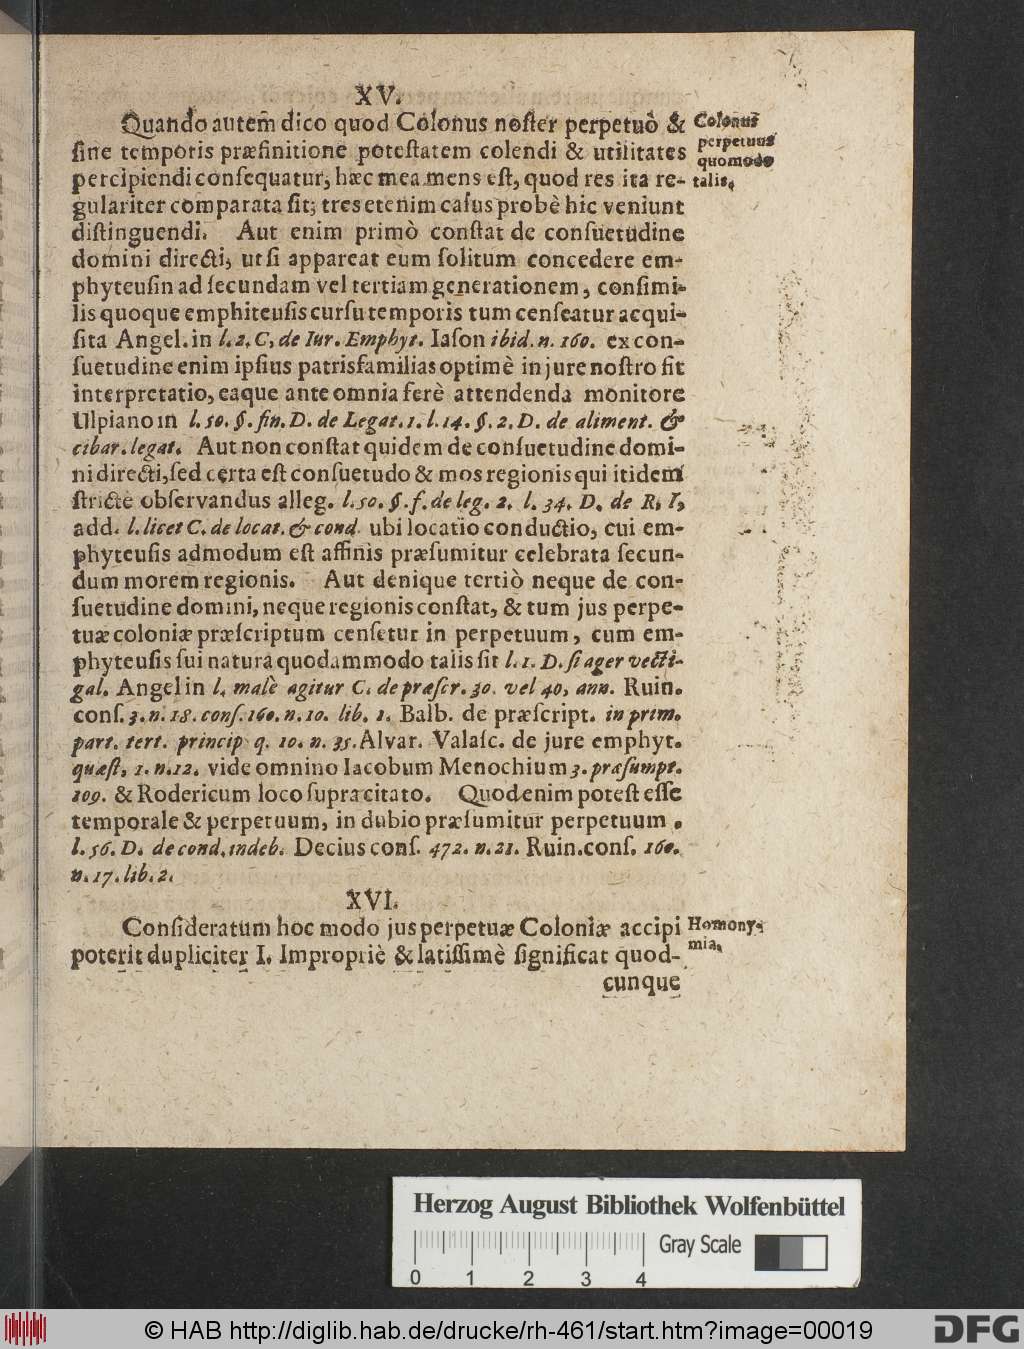 XV.
Quando autem dico quod Colonus noster perpetuò &
sine temporis præfinitione potestatem colendi & utilitates
percipiendi consequatur, hæc mea mens est, quod res ita re-
gulariter comparata sit; tres etenim casus probè hic veniunt
distinguendi. Aut enim primò constat de consuetudine
domini directi, ut si appareat eum solitum concedere em-
phyteusin ad secundam vel tertiam generationem, consimi-
lis quoque emphiteusis cursu temporis tum censeatur acqui-
sita Angel. in l. 2. C, de Iur. Emphyt. Iason ibid. n. 160. ex con-
suetudine enim ipsius patrisfamilias optimè in jure nostro fit
interpretatio, eaque ante omnia ferè attendenda monitore
Ulpiano in l. 50. §. fin. D. de Legat. 1. l. 14. §. 2. D. de aliment. &
cibar. legat. Aut non constat quidem de consuetudine domi-
ni directi, sed certa est consuetudo & mos regionis qui itidem
strictè observandus alleg. l. 50. §. f. de leg. 2. l. 34. D. de R. I,
add. l. licet C. de locat. & cond. ubi locatio conductio, cui em-
phyteusis admodum est affinis præsumitur celebrata secun-
dum morem regionis. Aut denique tertiò neque de con-
suetudine domini, neque regionis constat, & tum jus perpe-
tuæ coloniæ præscriptum censetur in perpetuum, cum em-
phyteusis sui natura quodammodo talis sit l. 1. D. si ager vecti-
gal. Angel in l. malè agitur C. de præscr. 30. vel 40, ann. Ruin.
cons. 3. n. 18. cons. 160. n. 10. lib. 1. Balb. de præscript. in prim.
part. tert. princip q. 10. n. 35. Alvar. Valasc. de jure emphyt.
quæst, 1. n. 12. vide omnino Iacobum Menochium 3. præsumpt.
109. & Rodericum loco supra citato. Quod enim potest esse
temporale & perpetuum, in dubio præsumitur perpetuum.
l. 56. D. de cond. indeb. Decius cons. 472. n. 21. Ruin. cons. 160.
n. 17. lib. 2.
Colonus
perpetuus
quomodo
talis,
XVI.
Consideratum hoc modo jus perpetuæ Coloniæ accipi
poterit dupliciter I. Impropriè & latissimè significat quod-
cunque
Homony-
mia,
Herzog August Bibliothek Wolfenbüttel
Gray Scale
0 1 2 3 4
© HAB http://diglib.hab.de/drucke/rh-461/start.htm?image=00019
DFG